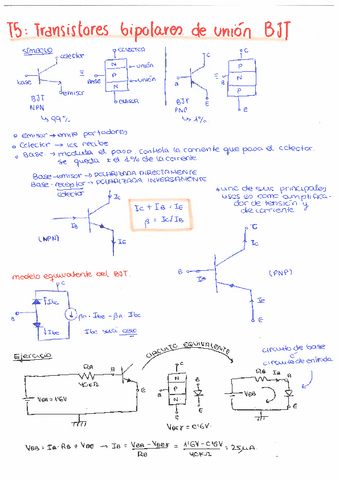 T5: Transistores bipolares de unión BJT
SÍMBOLO
colector
base
emisor
BJT
NPN
↳ 99%
colector
Base
N
P
N
unión
unión
B
C
E
BJT
PNP
↳ 1%
P
N
P
C
E
o Emisor → emite portadores
o Colector → los recibe
o Base → modula el paso, controla la corriente que pasa el colector.
se queda ± el 1% de la corriente
Base-emisor → POLARIZADA DIRECTAMENTE
Base-receptor → POLARIZADA INVERSAMENTE
colector
IB
IC
(NPN)
β = IC/IB
* uno de sus principales
usos es como amplificador
de tensión y
de corriente
B
C
IC
IB
IE
E
(PNP)
modelo equivalente del BJT.
C
B
E
Ejercicio
CIRCUITO EQUIVALENTE
circuito de base
circuito de entrada
RB
40KΩ
VBB = 1'6V
B
E
N
P
N
VBEγ = 0'6V
RB
IB
VBB
E
VBB = IB·RB + VBE → IB = VBB - VBEγ / RB = 1'6V - 0'6V / 40KΩ = 25μA.